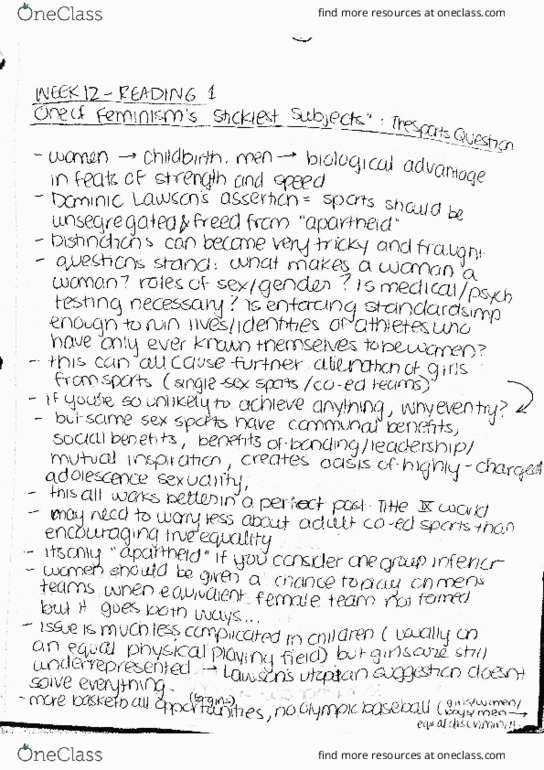 OneClass
find more resources at oneclass.com
WEEK 12 - READING 1
One of Feminism's Stickiest Subjects": The Sports Question
- women → childbirth. men → biological advantage
in feats of strength and speed
- Dominic Lawson's assertion = sports should be
unsegregated & freed from "apartheid"
- Distinctions can become very tricky and fraught
- questions stand: what makes a woman a
woman? roles of sex/gender? Is medical/psych
testing necessary? Is enforcing standards imp
enough to ruin lives/identities of athletes who
have only ever known themselves to be women?
- this can all cause further alienation of girls
from sports (single-sex sports/co-ed teams)
- if you're so unlikely to achieve anything, why even try?
- but same sex sports have communal benefits,
social benefits, benefits of bonding/leadership/
mutual inspiration, creates oasis of highly-charged
adolescence sexuality,
- this all works better in a perfect post-Title IX world
- may need to worry less about adult co-ed sports than
encouraging true equality
- its only "apartheid" if you consider one group inferior
- women should be given a chance to play on mens
teams when equivalent female team not formed
but it goes both ways...
- issue is much less complicated in children (usually on
an equal physical playing field) but girls are still
underrepresented → Lawson's utopian suggestion doesnt
solve everything.
- more basketball opportunities, (for girls) no olympic baseball (girls/women/
boys/men →
equal discrimin
OneClass
find more resources at oneclass.com